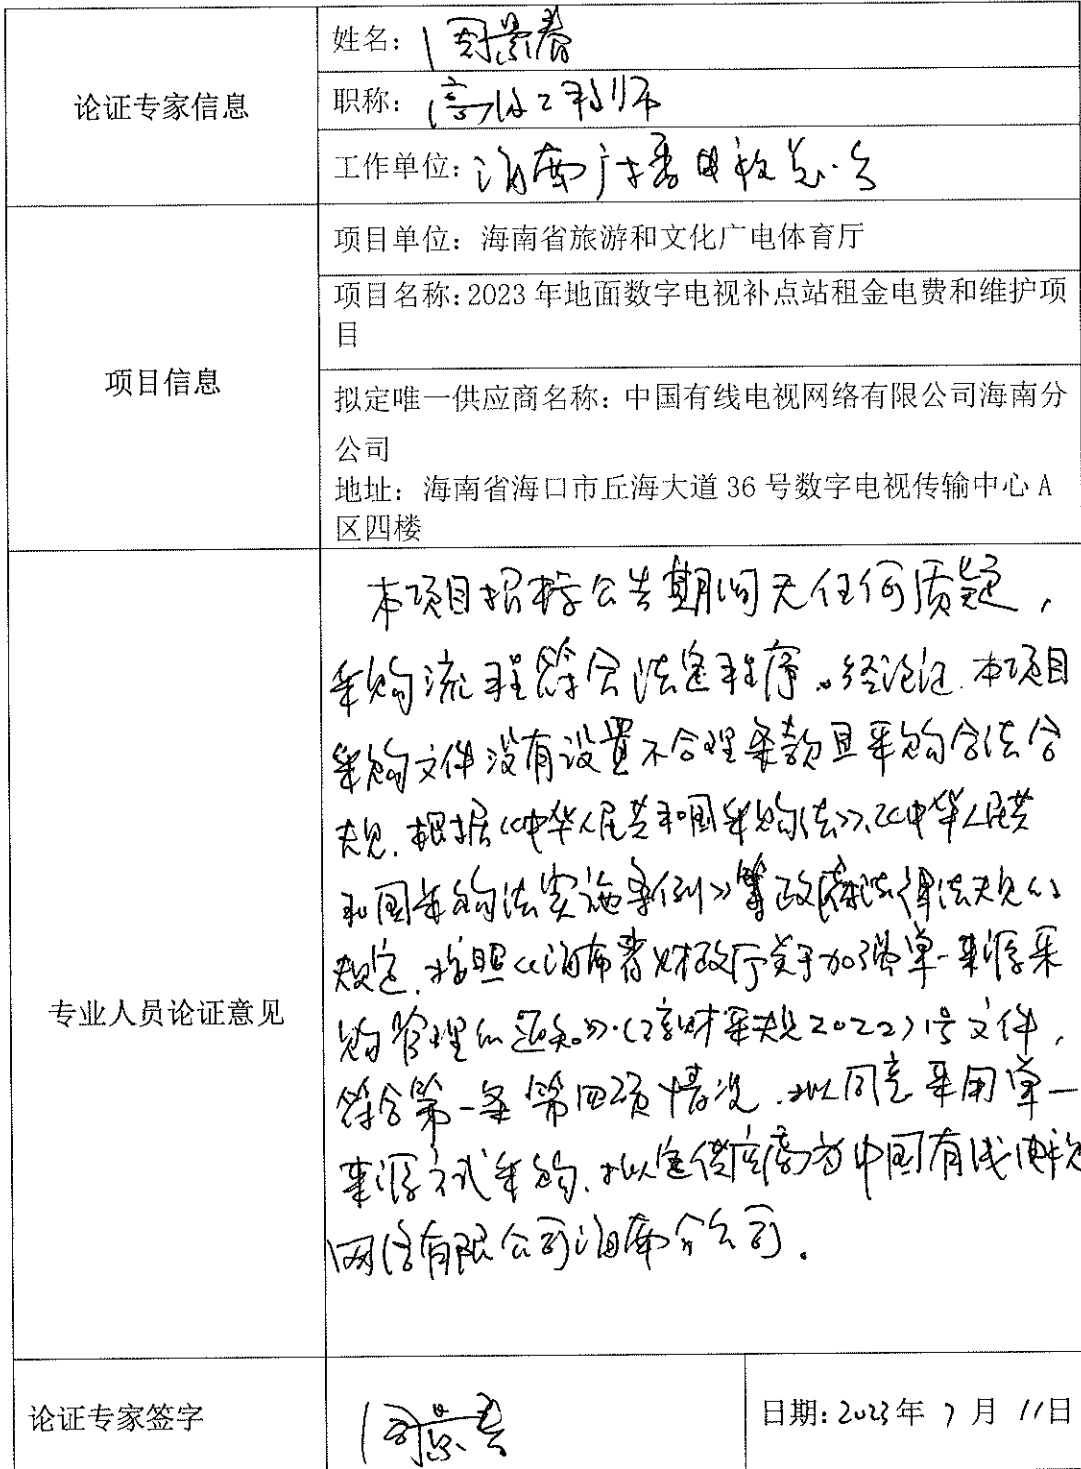 论证专家信息
姓名：周景春
职称：高级工程师
工作单位：海南广播电视总台
项目信息
项目单位：海南省旅游和文化广电体育厅
项目名称：2023年地面数字电视补点站租金电费和维护项
目
拟定唯一供应商名称：中国有线电视网络有限公司海南分
公司
地址：海南省海口市丘海大道36号数字电视传输中心A
区四楼
专业人员论证意见
本项目招标公告期间无任何质疑，
采购流程符合法定程序。经论证.本项目
采购文件没有设置不合理条款且采购合法合
规.根据《中华人民共和国采购法》、《中华人民共
和国采购法实施条例》等政府法律法规的
规定.按照《海南省财政厅关于加强单一来源采
购管理的通知》(琼财采规2022)1号文件，
符合第一条第四项情况.拟同意采用单一
来源方式采购.拟定供应商为中国有线电视
网络有限公司海南分公司。
论证专家签字
周景春
日期：2023年7月11日